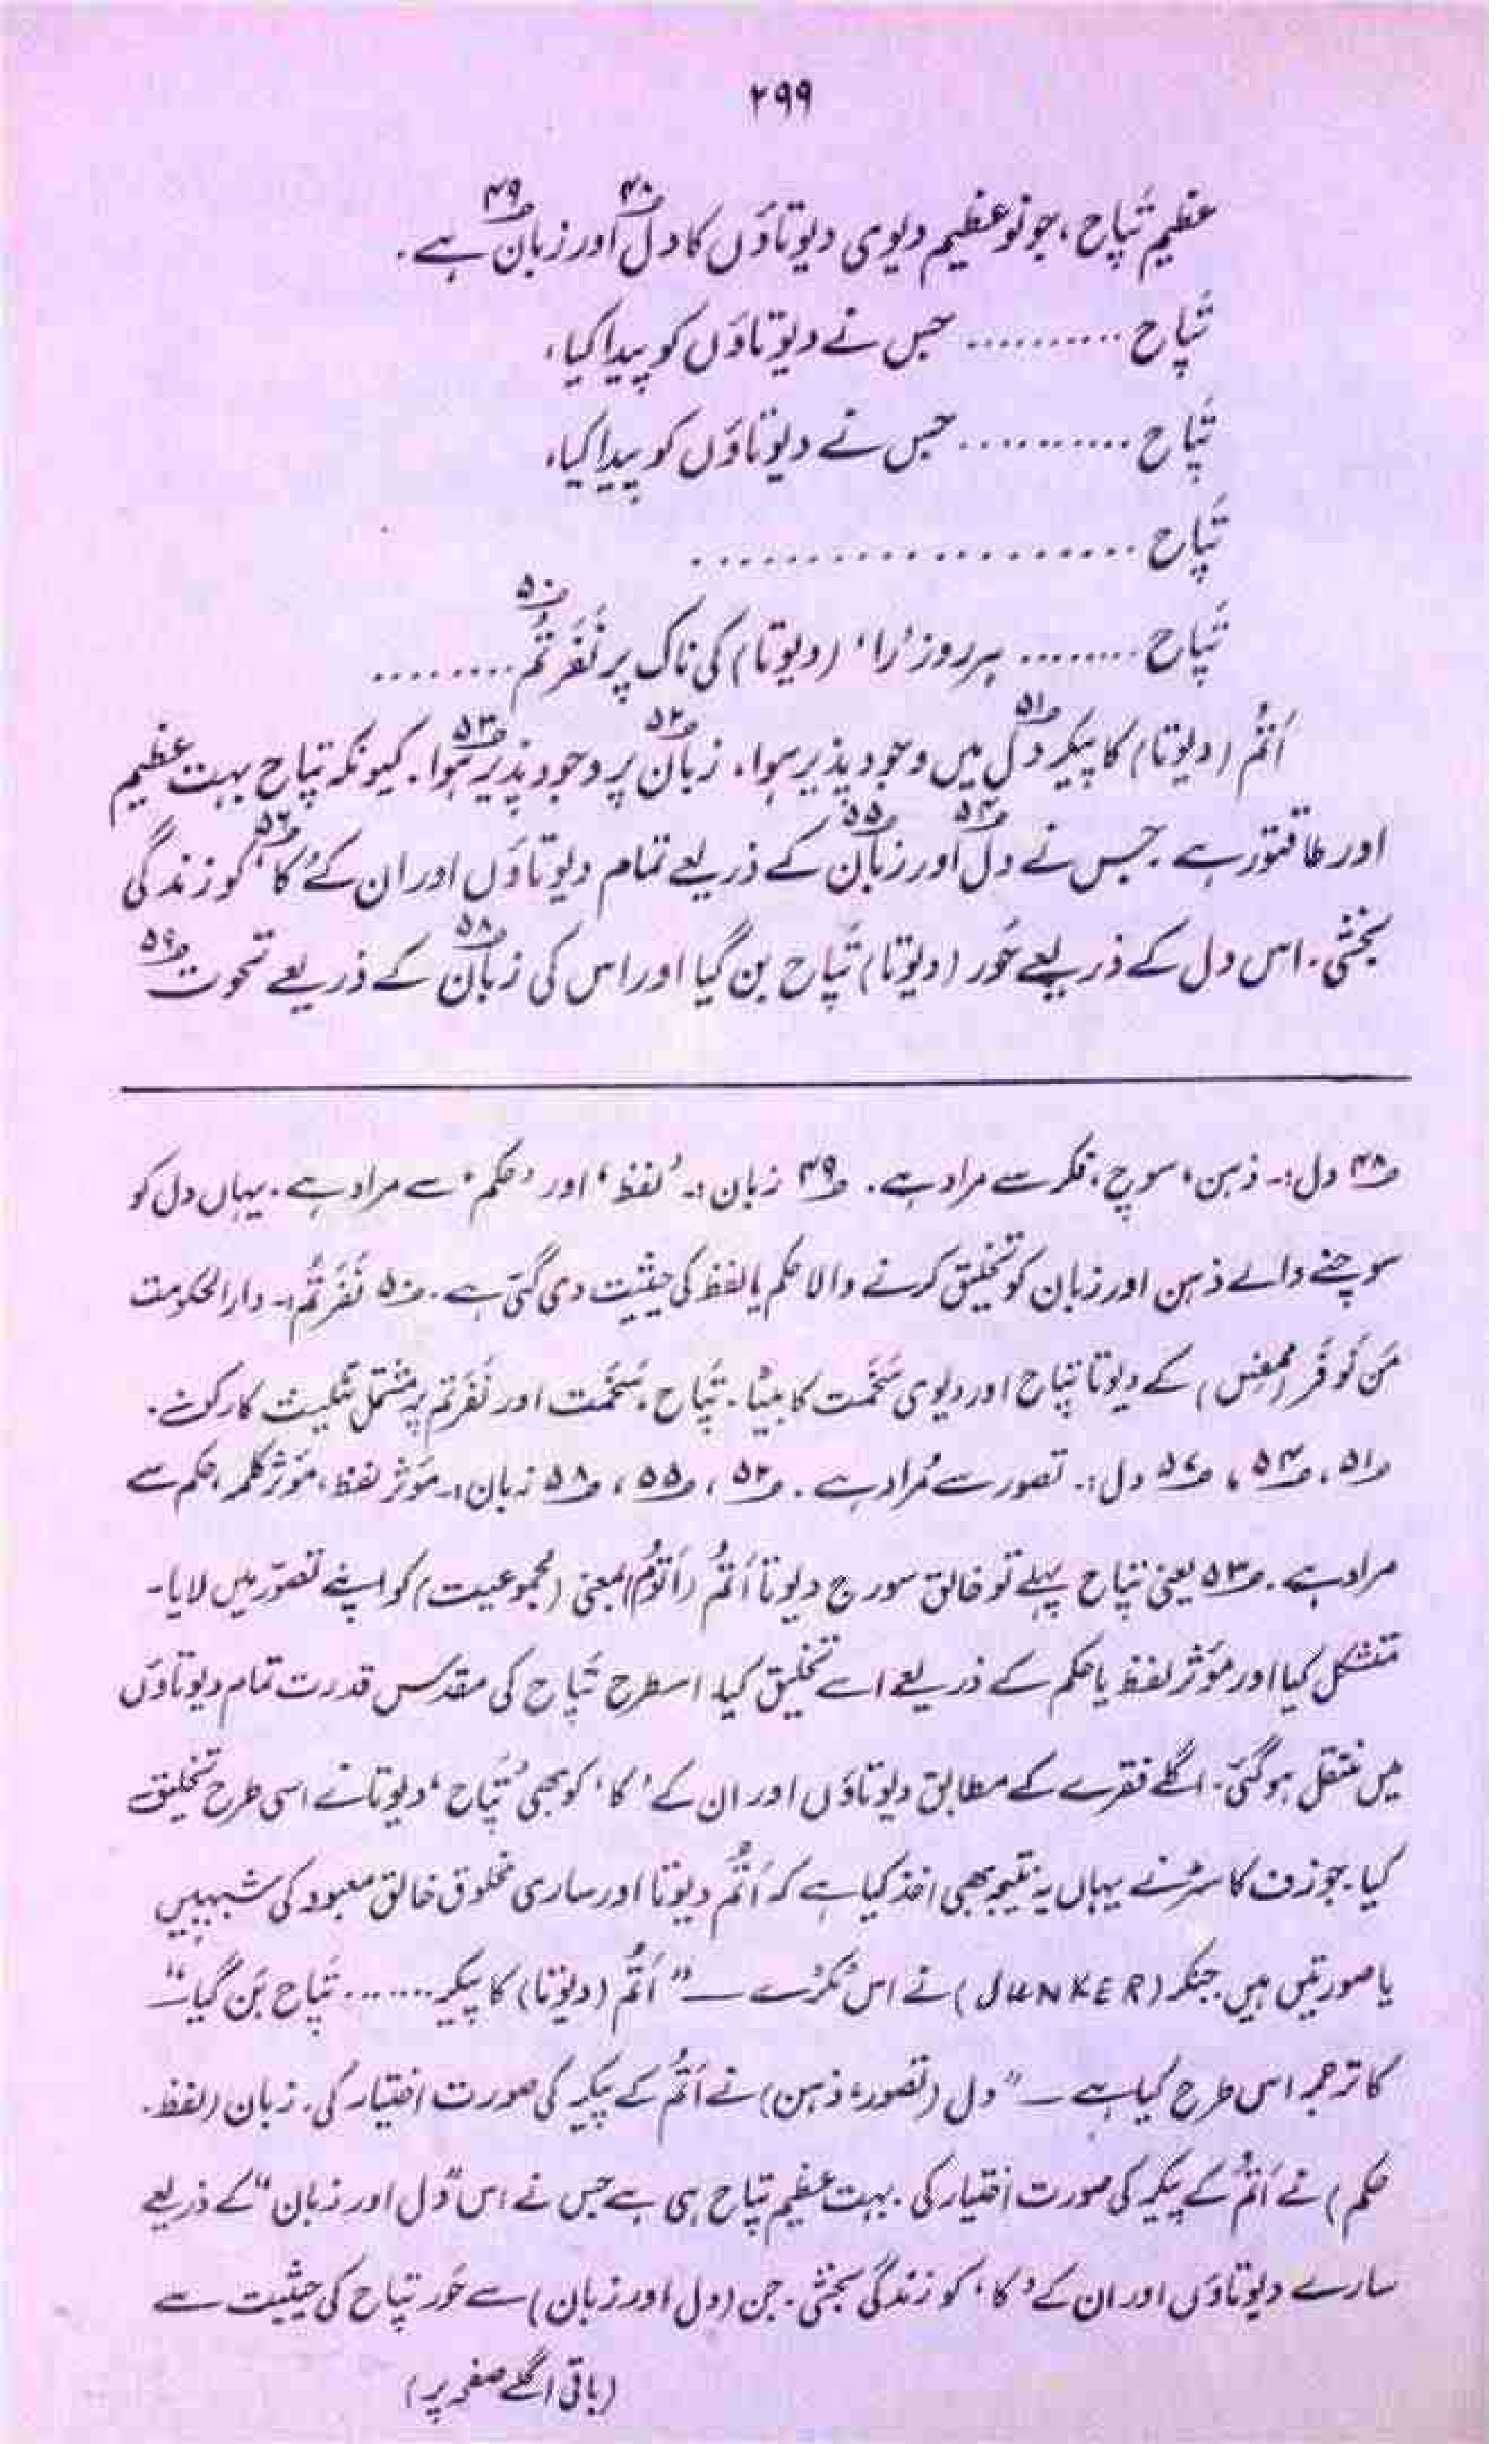 ۲۹۹
عظیم تپاح، جو نو عظیم دیوی دیوتاؤں کا دل۴۸ اور زبان۴۹ ہے۔
تپاح .......... جس نے دیوتاؤں کو پیدا کیا،
تپاح .......... جس نے دیوتاؤں کو پیدا کیا،
تپاح ....................
تپاح ........ ہر روز 'را' (دیوتا) کی ناک پر نَفَرتُم۵۰ ........
اَتُم (دیوتا) کا پیکر دل۵۱ میں وجود پذیر ہوا، زبان۵۲ پر وجود پذیر ہوا۵۳۔ کیونکہ تپاح بہت عظیم
اور طاقتور ہے۔ جس نے دل۵۴ اور زبان۵۵ کے ذریعے تمام دیوتاؤں اور ان کے 'کا'۵۶ کو زندگی
بخشی۔ اس دل کے ذریعے حَور (دیوتا) تپاح بن گیا اور اس کی زبان۵۸ کے ذریعے تحوت۵۹
۴۸ دل:۔ ذہن، سوچ، فکر سے مراد ہے۔ ۴۹ زبان:۔ 'لفظ' اور 'حکم' سے مراد ہے۔ یہاں دل کو
سوچنے والے ذہن اور زبان کو تخلیق کرنے والا حکم یا لفظ کی حیثیت دی گئی ہے۔ ۵۰ نَفَرتُم:۔ دارالحکومت
مَن نُوفَر (ممفس) کے دیوتا تپاح اور دیوی سَخمت کا بیٹا۔ تپاح، سَخمت اور نَفَرتم پر مشتمل تثلیث کا رکن۔
۵۱، ۵۴، ۵۷ دل:۔ تصور سے مُراد ہے۔ ۵۲، ۵۵، ۵۸ زبان:۔ مؤثر لفظ، مؤثر کلمہ، حکم سے
مراد ہے۔ ۵۳ یعنی تپاح پہلے تو خالق سورج دیوتا اَتُم (اَتوُم) بمعنی (مجموعیت) کو اپنے تصوّر میں لایا۔
متشکل کیا اور مؤثر لفظ یا حکم کے ذریعے اسے تخلیق کیا۔ اسطرح تپاح کی مقدس قدرت تمام دیوتاؤں
میں منتقل ہو گئی۔ اگلے فقرے کے مطابق دیوتاؤں اور ان کے 'کا' کو بھی 'تپاح' دیوتا نے اسی طرح تخلیق
کیا۔ جوزف کاسٹر نے یہاں یہ نتیجہ بھی اخذ کیا ہے کہ اَتُم دیوتا اور ساری مخلوق خالق معبود کی شبہیں
یا صورتیں ہیں۔ جنکر (JUNKER) نے اس ٹکڑے — "اَتُم (دیوتا) کا پیکر ........ تپاح بَن گیا" —
کا ترجمہ اس طرح کیا ہے — "دل (تصور، ذہن) نے اَتُم کے پیکر کی صورت اختیار کی۔ زبان (لفظ۔
حکم) نے اَتُم کے پیکر کی صورت اختیار کی۔ بہت عظیم تپاح ہی ہے جس نے اس "دل اور زبان" کے ذریعے
سارے دیوتاؤں اور ان کے 'کا' کو زندگی بخشی۔ جن (دل اور زبان) سے حَور تپاح کی حیثیت سے
(باقی اگلے صفحہ پر)